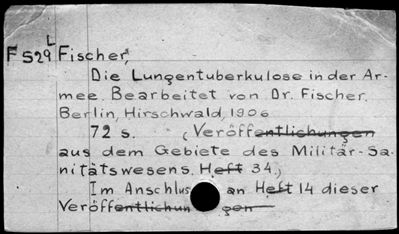 L
F529 Fischer,
Die Lungentuberkulose in der Ar-
mee. Bearbeitet von Dr. Fischer.
Berlin, Hirschwald, 1906
72 s. (Veröffentlichungen
aus dem Gebiete des Militär-Sa-
nitätswesens. Heft 34.)
Im Anschlus an Heft 14 dieser
Veröffentlichungen